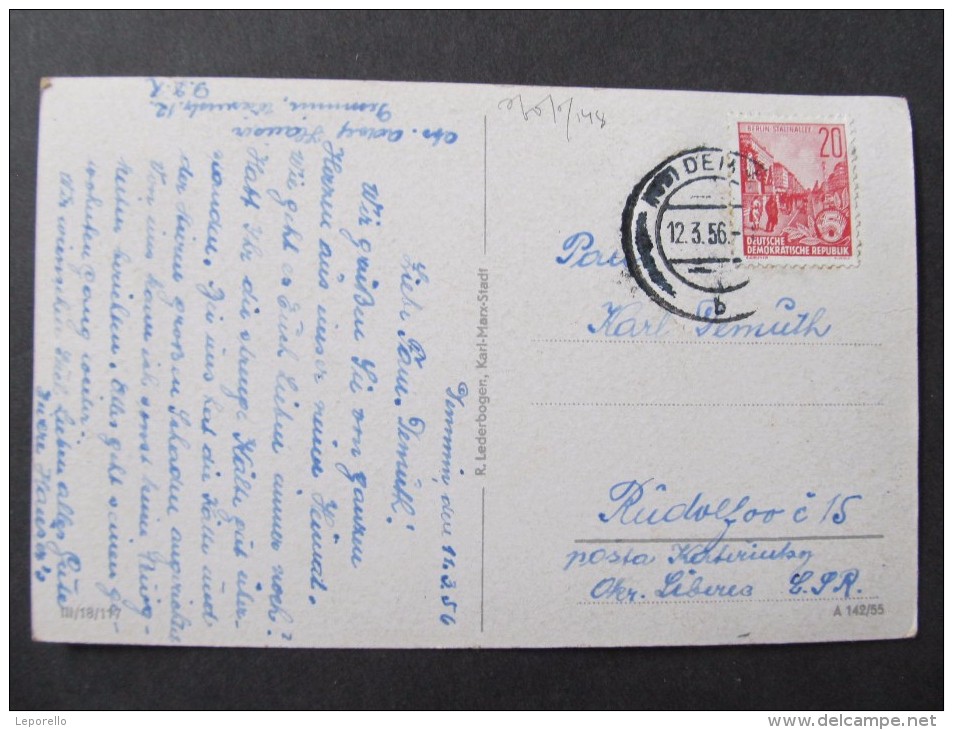 Demmin, den 11.3.56
Liebe Fam. Demuth!
Wir grüßen Sie von ganzem
Herzen aus unser neuen Heimat.
Wie geht es Euch Lieben immer noch?
Habt Ihr die strenge Kälte gut über-
standen. Bei uns hat die Kälte und
der Sturm großen Schaden angerichtet
Von uns kann ich sonst keine Neuig-
keiten mitteilen. Alles geht seinen ge-
wohnten Gang weiter.
Wir wünschen Euch Lieben alles Gute
Eure Hauser's
Abs. Adolf Hauser
Demmin, 12.
D.D.R.
R. Lederbogen, Karl-Marx-Stadt
III/18/117
148
DEM
12.3.56.-
b
BERLIN STALINALLEE
20
5
DEUTSCHE
DEMOKRATISCHE REPUBLIK
Karl Demuth
Rudolfov č 15
posta Kateřinky
Okr. Liberec Č.S.R.
A 142/55
Leporello
www.delcampe.net